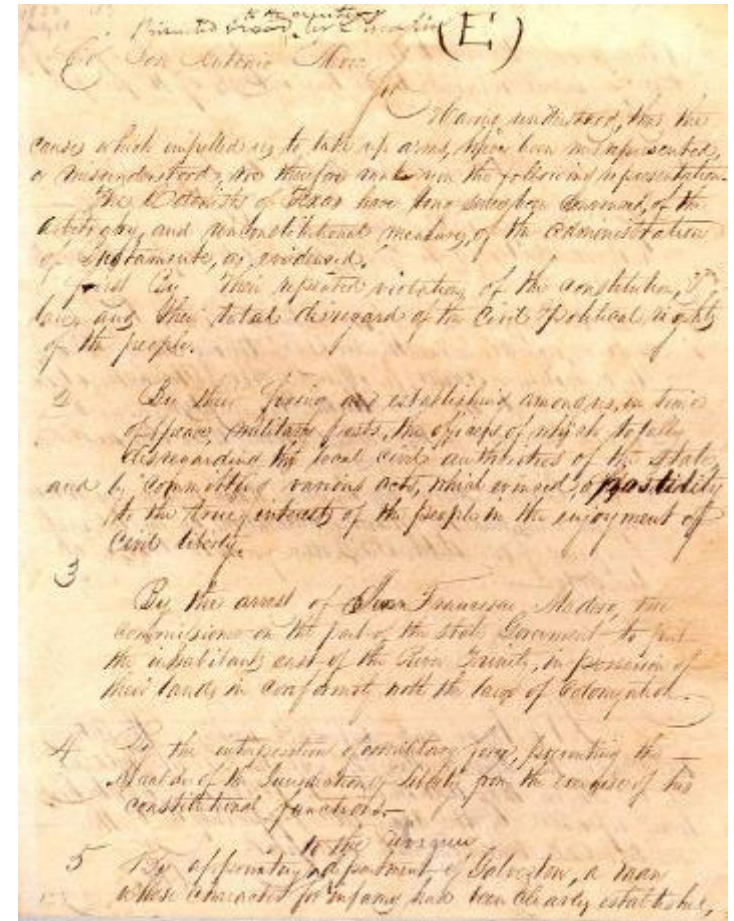 (E)
Col Jose Antonio Mexia
Sir
Having understood, that the
causes which impelled us to take up arms, have been misrepresented,
or misunderstood, we therefore make you the following representation.
The Colonists of Texas have long since been convinced, of the
arbitrary, and unconstitutional measures, of the administration
of Bustamente, as evidenced.
First By their repeated violations of the constitution, &
laws and their total disregard of the civil & political rights
of the people.
2 By their fixing and establishing among us, in time
of peace, military posts, the officers of which, totally
disregarding the local civil authorities of the state,
and by committing various acts, which evinced, opposition
to the true interests of the people in the enjoyment of
civil liberty.
3
By the arrest of Juan Francisco Madero, the
commissioner on the part of the state Government to put
the inhabitants east of the River Trinity, in possession of
their lands in conformity with the laws of Colonization.
4 By the interposition of military force, preventing the
Alcalde of the Jurisdiction of Liberty from the exercise of his
constitutional functions.
to the
5 By appointing department of Galveston, a man
whose character for infamy had been clearly established,